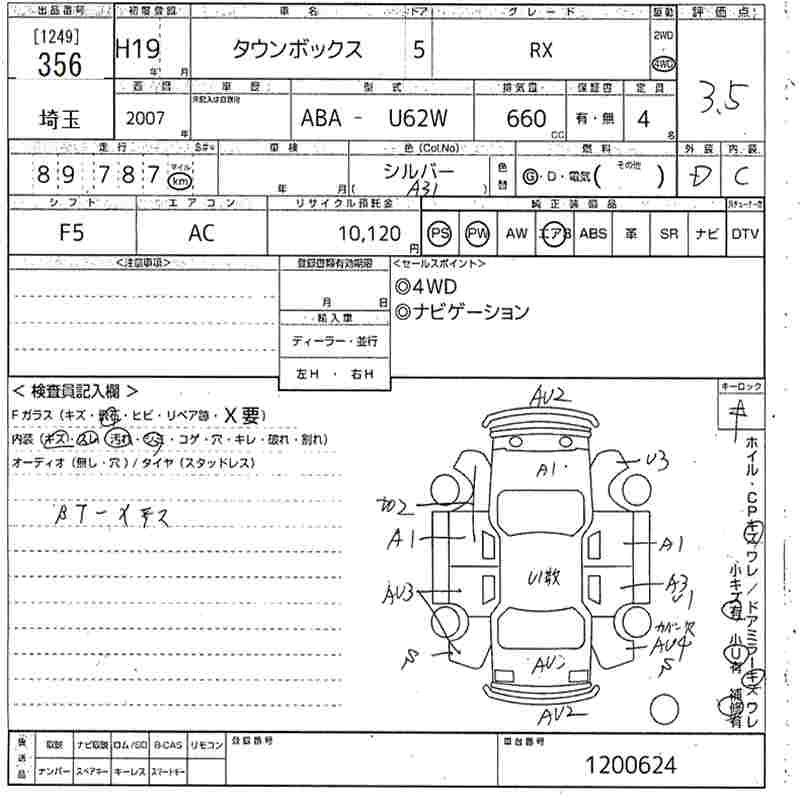 出品番号 初度登録 車名 ドア グレード 駆動 評価点
[1249] 356 H19 年 月 タウンボックス 5 RX 2WD・4WD 3.5
埼玉 西暦 車歴 型式 排気量 保証書 定員
2007 年 未記入は自家用 ABA - U62W 660 CC 有・無 4 名
走行 S#* 車検 色(Col.No) 色替 燃料 外装 内装
89,787 マイル km 年 月 シルバー ( A31 ) G・D・電気( その他 ) D C
シフト エアコン リサイクル預託金 純正装備品
F5 AC 10,120 円 PS PW AW エアB ABS 革 SR ナビ DTV
<注意事項> 登録書類有効期限 <セールスポイント>
月 日 ◎4WD
輸入車 ◎ナビゲーション
ディーラー・並行
左H ・ 右H
< 検査員記入欄 > キーロック
Fガラス (キズ・ ・ヒビ・リペア跡・X要) キ
内装 (キズ・ ・汚れ・シミ・コゲ・穴・キレ・破れ・割れ)
オーディオ (無し・穴) / タイヤ (スタッドレス)
AU2
A1
U3
A1
A1
U1数
AU3
A3
U1
カバー欠
AU4
S
S
AU2
ホイル・CPキズワレ/ドアミラーキズワレ
小キズ有 小U有 補修有
後送品 取説 ナビ取説 ロム/SD B-CAS リモコン 登録番号 車台番号
ナンバー スペアキー キーレス スマートキー 1200624